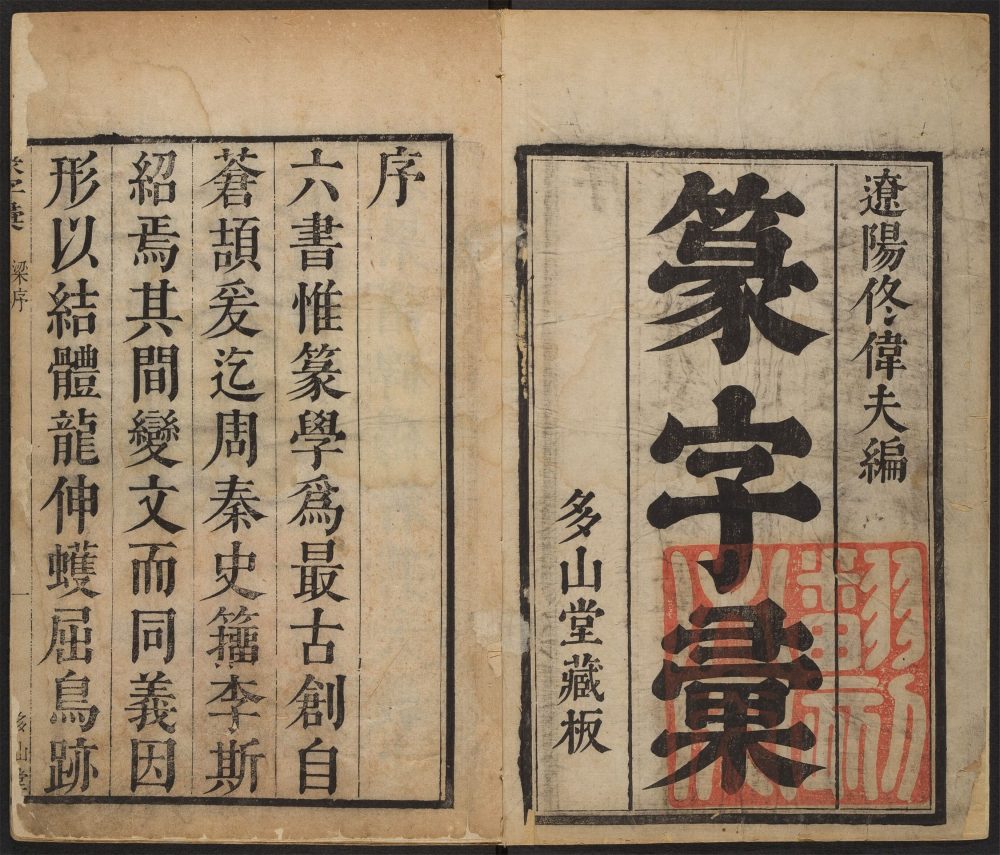 遼陽佟偉夫編
篆字彙
多山堂藏板
序
六書惟篆學爲最古創自
蒼頡爰迄周秦史籒李斯
紹焉其間變文而同義因
形以結體龍伸蠖屈鳥跡
梁序
多山堂